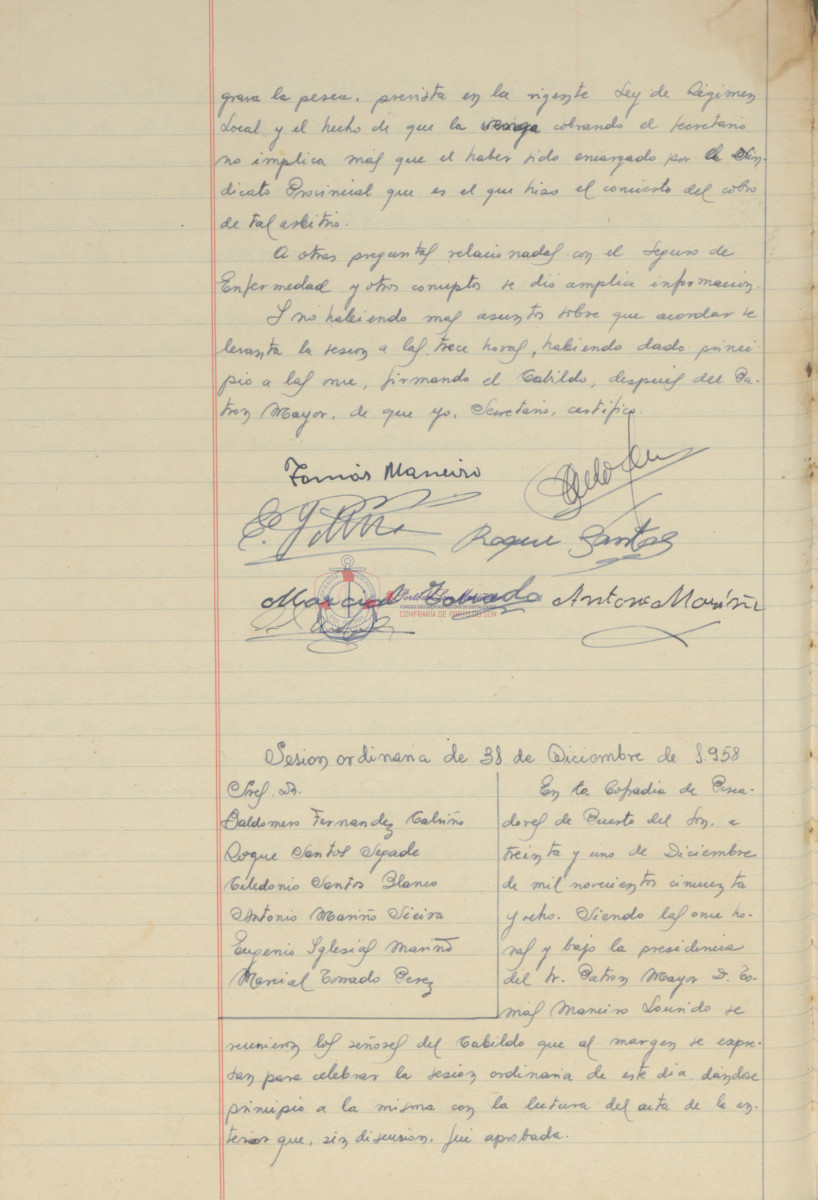 grava la pesca, prevista en la vigente Ley de Régimen
Local y el hecho de que la venga cobrando el secretario
no implica mas que el haber sido encargado por el Sin-
dicato Provincial que es el que hizo el concierto del cobro
de tal arbitrio.
A otras preguntas relacionadas con el Seguro de
Enfermedad y otros conceptos se dio amplia informacion.
Y no habiendo mas asuntos sobre que acordar se
levanta la sesion a las trece horas, habiendo dado princi-
pio a las once, firmando el Cabildo, después del Pa-
tron Mayor, de que yo, Secretario, certifico.
Tomás Maneiro
Roque Santos
Marcial Tobrado Antonio Mariño
CONFRARIA DE PORTO DO SON
Sesion ordinaria de 31 de Diciembre de 1.958
Sres. D.
Baldomero Fernandez Calviño
Roque Santos Segade
Celedonio Santos Blanco
Antonio Mariño Sieira
Eugenio Iglesias Mariño
Marcial Torrado Perez
En la Cofradia de Pesca-
dores de Puerto del Son, a
treinta y uno de Diciembre
de mil novecientos cincuenta
y ocho. Siendo las once ho-
ras y bajo la presidencia
del Sr. Patron Mayor D. To-
mas Maneiro Lourido se
reunieron los señores del Cabildo que al margen se expre-
san para celebrar la sesion ordinaria de este dia, dandose
principio a la misma con la lectura del acta de la an-
terior que, sin discusion, fue aprobada.